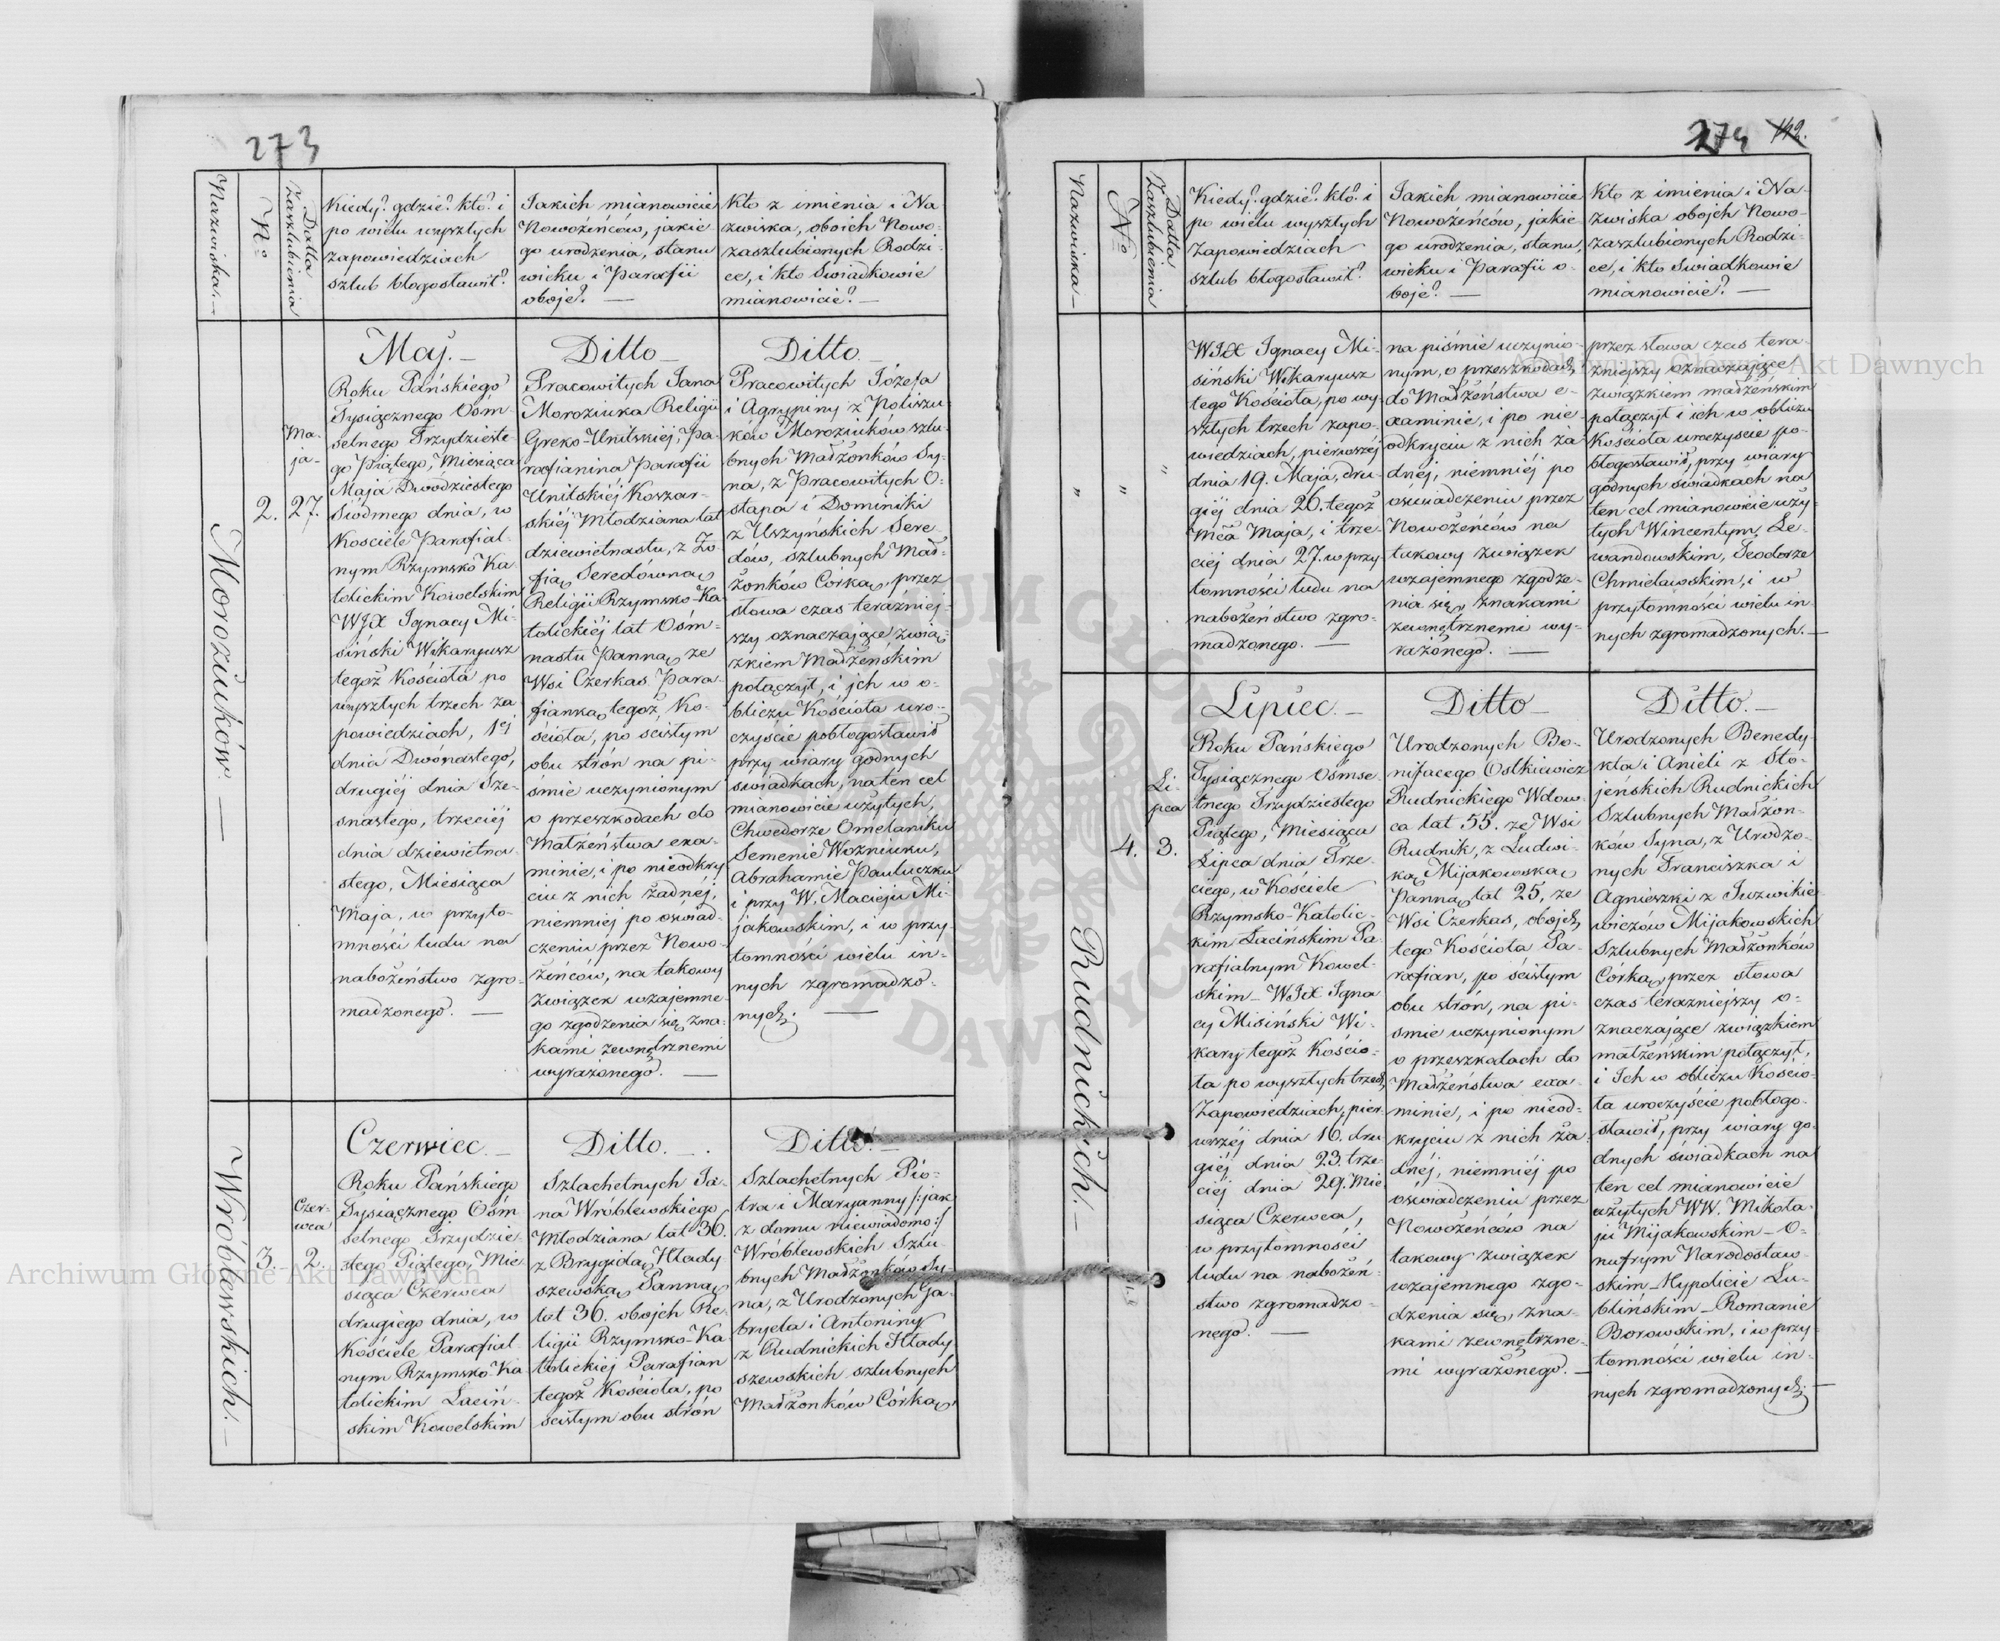 273
Nazwiska. —
No
Datta
Zaszlubienia
Kiedy? gdzie? kto? i
po wielu wyszłych
zapowiedziach
szlub błogosławił?
Jakich mianowicie
Nowożeńców, jakie
go urodzenia, stanu
wieku i Parafii
oboje? —
Kto z imienia i Na
zwiska, oboich Nowo-
zaszlubionych Rodzi-
ce, i kto Swiadkowie
mianowicie? —
Morozuików. —
2.
Ma-
ja-
27.
Maj. —
Roku Pańskiego
Tysiącznego Osm-
setnego Trzydzieste
go Piątego, Miesiąca
Maja Dwódziestego
Siódmego dnia, w
Kosciele Parafial-
nym Rzymsko Ka
tolickim Kowelskim
WJX Ignacy Mi-
siński Wikaryusz
tegoż Kościoła po
wyszłych trzech za
powiedziach, 1ej
dnia Dwónastego,
drugiéj dnia Sze-
snastego, trzeciéj
dnia dziewietna-
stego, Miesiąca
Maja, w przyto-
mności ludu na
nabożeństwo zgro-
madzonego. —
Ditto —
Pracowitych Jana
Moroziuka Religii
Greko-Unitskiéj, Pa-
rafianina Parafii
Unitskiéj Koszar-
skiéj Młodziana lat
dziewietnastu, z Zo-
fią Seredówną
Religii Rzymsko-Ka
tolickiéj lat Ośm-
nastu Panną ze
Wsi Czerkas Para-
fianką tegoż Ko-
ścioła, po scisłym
obu strón na pi-
śmie uczynionym
o przeszkodach do
Małżeństwa exa-
minie, i po nieodkry
ciu z nich żadnéj,
niemniéj po oświad-
czeniu przez Nowo-
żeńców, na takowy
związek wzajemne-
go zgodzenia się zna-
kami zewnętrznemi
wyrażonego. —
Ditto. —
Pracowitych Józefa
i Agrypiny z Poliszu-
ków Moroziuków szlu-
bnych Małżonków Sy-
na, z Pracowitych O-
stapa i Dominiki
z Uszyńskich Sere-
dów, szlubnych Mał-
żonków Córką, przez
słowa czas teraźniej-
szy oznaczające zwią-
zkiem Małżeńskim
połączył, i jch w o-
bliczu Kościoła uro-
czyście pobłogosławił
przy wiary godnych
swiadkach, na ten cel
mianowicie użytych,
Chwedorze Omelaniku
Semenie Wozniuku,
Abrahamie Pauluczku
i przy W. Macieju Mi-
jakowskim, i w przy-
tomności wielu in-
nych zgromadzo-
nych. —
Wróblewskich. —
3.
Czer-
wca
2.
Czerwiec. —
Roku Pańskiego
Tysiącznego Ośm
setnego Trzydzie-
stego Piątego, Mie
siąca Czerwca
drugiego dnia, w
Kościele Parafial-
nym Rzymsko-Ka
tolickim Laciń-
skim Kowelskim
Ditto. —
Szlachetnych Ja-
na Wróblewskiego
Młodziana lat 36.
z Brygidą Hłady
szewską Panną
lat 36. obojch Re-
ligii Rzymsko-Ka
tolickiéj Parafian
tegoż Kościoła, po
scisłym obu strón
Ditto. —
Szlachetnych Pio-
tra i Maryanny /:jak
z domu niewiadomo:/
Wróblewskich Szlu-
bnych Małżonków Sy-
na, z Urodzonych Ga-
bryela i Antoniny
z Rudnickich Hłady
szewskich szlubnych
Małżonków Córką,
274 142.
Nazwiska —
No
Datta
Zaszlubienia
Kiedy? gdzie? kto? i
po wielu wyszłych
Zapowiedziach
szlub błogosławił?
Jakich mianowicie
Nowożeńców, jakie-
go urodzenia, stanu,
wieku i Parafii o-
boje? —
Kto z imienia i Na-
zwiska obojch Nowo-
zaszlubionych Rodzi-
ce, i kto Swiadkowie
mianowicie? —
"
"
"
WJX Ignacy Mi-
siński Wikaryusz
tego Kościoła, po wy-
szłych trzech zapo-
wiedziach, pierwszéj
dnia 19. Maja, dru-
giéj dnia 26. tegoż
Mca Maja, i trze-
ciéj dnia 27. w przy-
tomności ludu na
nabożeństwo zgro-
madzonego. —
na piśmie uczynio-
nym, o przeszkodach
do Małżeństwa e-
xaminie, i po nie-
odkryciu z nich ża
dnéj, niemniéj po
oswiadczeniu przez
Nowożeńców na
takowy związek
wzajemnego zgodze-
nia się znakami
zewnętrznemi wy-
rażonego. —
przez słowa czas tera-
zniejszy oznaczające
związkiem małżeńskim
połączył i ich w obliczu
Kościoła uroczyscie po-
błogosławił, przy wiary
godnych swiadkach na
ten cel mianowicie uży-
tych Wincentym Le-
wandowskim, Teodorze
Chmielawskim, i w
przytomności wielu in-
nych zgromadzonych. —
Rudnickich. —
4.
Li-
pca
3.
Lipiec. —
Roku Pańskiego
Tysiącznego Osmse-
tnego Trzydziestego
Piątego, Miesiąca
Lipca dnia Trze-
ciego, w Kościele
Rzymsko-Katolic-
kim Łacińskim Pa-
rafialnym Kowel-
skim — WJX Igna
cy Misiński Wi-
kary tegoż Koscio-
ła po wyszłych trzech
Zapowiedziach, pier-
wszéj dnia 16. dru
giéj dnia 23. trze-
ciéj dnia 29. Mie
siąca Czerwca,
w przytomności
ludu na nabożeń-
stwo zgromadzo-
nego. —
Ditto —
Urodzonych Bo-
nifacego Ostkiewicz
Rudnickiego Wdow-
ca lat 55. ze Wsi
Rudnik, z Ludwi-
ką Mijakowską
Panną lat 25, ze
Wsi Czerkas, obojch
tego Kościoła Pa-
rafian, po ścisłym
obu strón, na pi-
smie uczynionym
o przeszkodach do
Małżeństwa exa-
minie, i po nieod-
kryciu z nich ża
dnéj, niemniéj po
oświadczeniu przez
Nowożeńców na
takowy związek
wzajemnego zgo-
dzenia się zna-
kami zewnętrzne-
mi wyrażonego. —
Ditto. —
Urodzonych Benedy-
kta i Anieli z Sto-
jeńskich Rudnickich
Szlubnych Małżon-
ków Syna, z Urodzo-
nych Franciszka i
Agnieszki z Juzwikie-
wiczów Mijakowskich
Szlubnych Małżonków
Córką, przez słowa
czas teraźniejszy o-
znaczające związkiem
małżeńskim połączył,
i Jch w obliczu Koscio-
ła uroczyście pobłogo-
sławił, przy wiary go-
dnych świadkach na
ten cel mianowicie
użytych WW. Mikoła-
ju Mijakowskim — O-
nufrym Narodosław-
skim — Hypolicie Lu-
blińskim — Romanie
Borowskim, i w przy-
tomności wielu in-
nych zgromadzonych. —
Archiwum Główne Akt Dawnych
Archiwum Główne Akt Dawnych